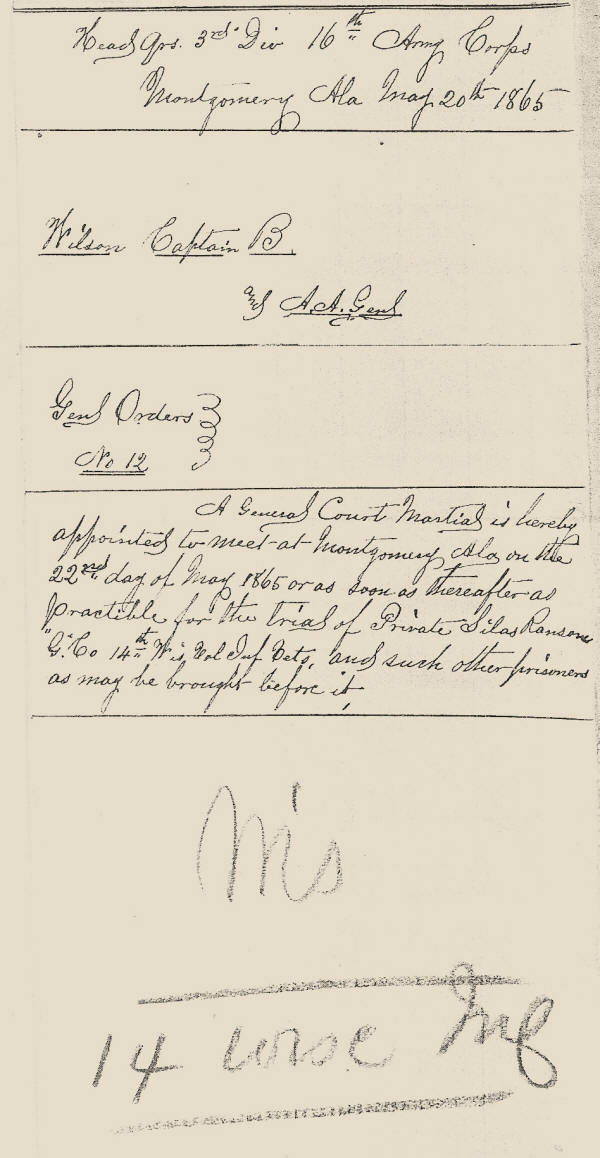 Head Qrs. 3rd Div 16th Army Corps
Montgomery Ala May 20th 1865
Wilson Captain B.
and A.A. Genl
Genl Orders
No 12
A General Court Martial is hereby
appointed to meet at Montgomery Ala on the
22nd day of May 1865 or as soon as thereafter as
practible for the trial of Private Silas Ransome
"G" Co 14th Wis Vol Inf Vets, and such other prisoners
as may be brought before it,
14 wisc Inf